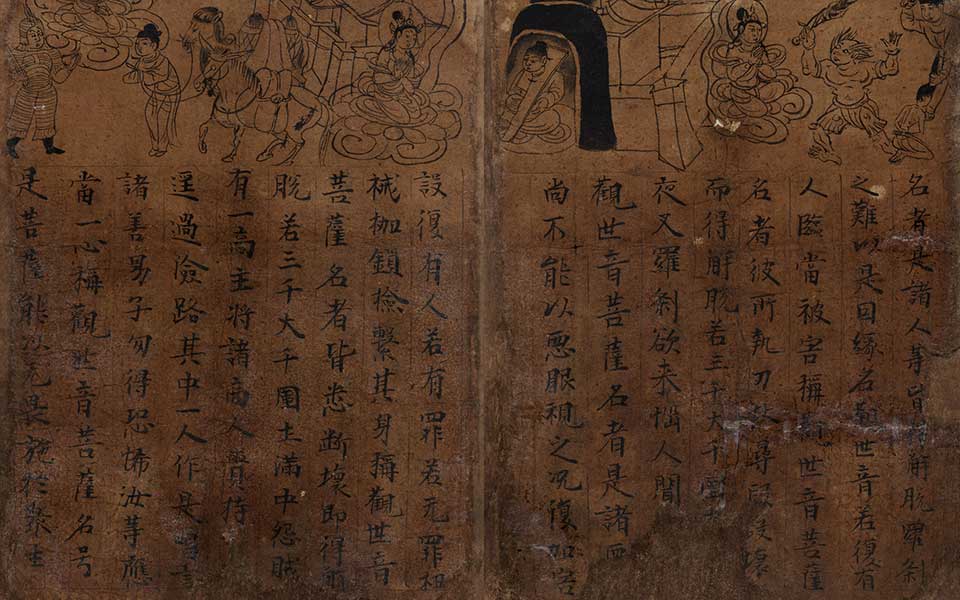 名者是諸人等皆得解脫羅剎
之難以是因緣名觀世音若復有
人臨當被害稱觀世音菩薩
名者彼所執刀杖尋段段壞
而得解脫若三千大千國土
夜叉羅剎欲来惱人聞
觀世音菩薩名者是諸惡
尚不能以惡眼視之況復加害
設復有人若有罪若无罪杻
械枷鎖撿繫其身稱觀世音
菩薩名者皆悉断壞即得解
脫若三千大千國土滿中怨賊
有一商主將諸商人賷持
逕過險路其中一人作是唱言
諸善男子勿得恐怖汝等應
當一心稱觀世音菩薩名号
是菩薩能以无畏施於衆生